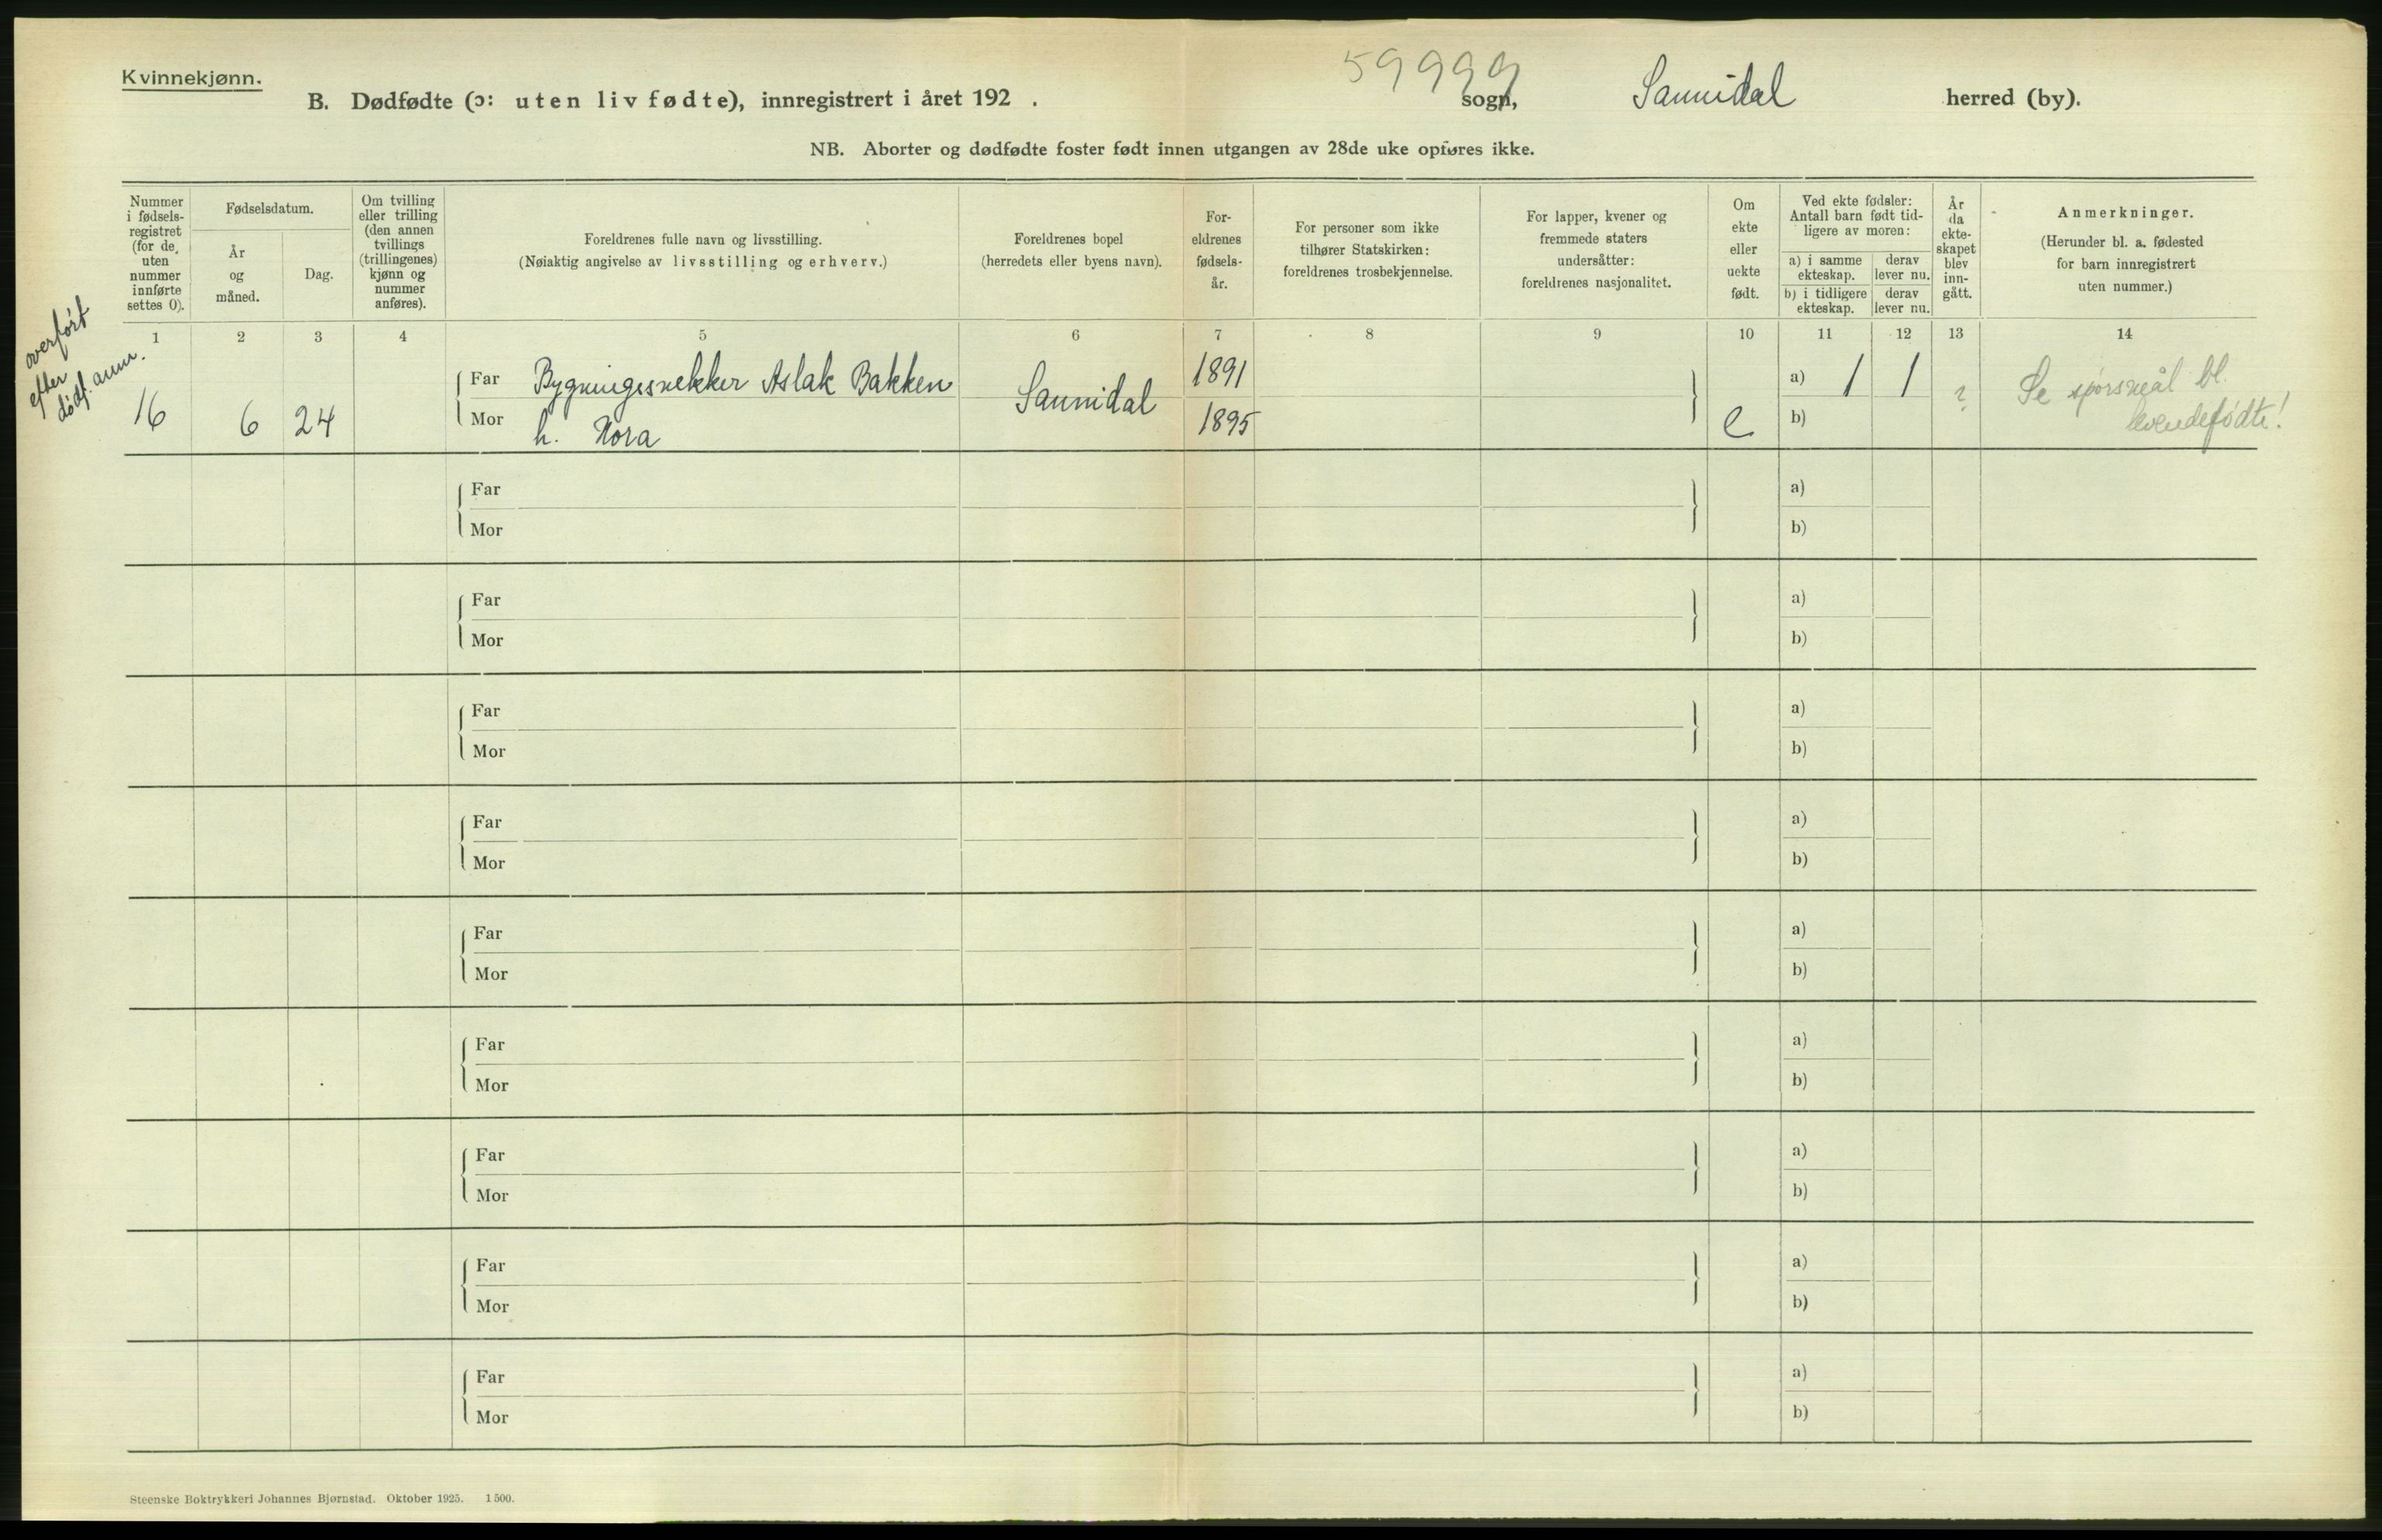 Kvinnekjønn.
59999
B. Dødfødte (ɔ: uten liv fødte), innregistrert i året 192 . sogn, Sannidal herred (by).
NB. Aborter og dødfødte foster født innen utgangen av 28de uke opføres ikke.
Nummer i fødsels-registret (for de uten nummer innførte settes 0).
Fødselsdatum.
År og måned.
Dag.
Om tvilling eller trilling (den annen tvillings (trillingenes) kjønn og nummer anføres).
Foreldrenes fulle navn og livsstilling.
(Nøiaktig angivelse av livsstilling og erhverv.)
Foreldrenes bopel
(herredets eller byens navn).
For-eldrenes fødsels-år.
For personer som ikke tilhører Statskirken: foreldrenes trosbekjennelse.
For lapper, kvener og fremmede staters undersåtter: foreldrenes nasjonalitet.
Om ekte eller uekte født.
Ved ekte fødsler: Antall barn født tid-ligere av moren:
a) i samme ekteskap.
derav lever nu.
b) i tidligere ekteskap.
derav lever nu.
År da ekte-skapet blev inn-gått.
Anmerkninger.
(Herunder bl. a. fødested for barn innregistrert uten nummer.)
1 2 3 4 5 6 7 8 9 10 11 12 13 14
overført
efter
dødf. anm.
16 6 24
Far Bygningssnekker Aslak Bakken
Mor h. Nora
Sannidal
1891
1895
e
a) 1 1
b)
?
Se spørsmål bl.
levendefødte!
Far a)
Mor b)
Far a)
Mor b)
Far a)
Mor b)
Far a)
Mor b)
Far a)
Mor b)
Far a)
Mor b)
Far a)
Mor b)
Far a)
Mor b)
Far a)
Mor b)
Steenske Boktrykkeri Johannes Bjørnstad. Oktober 1925. 1500.